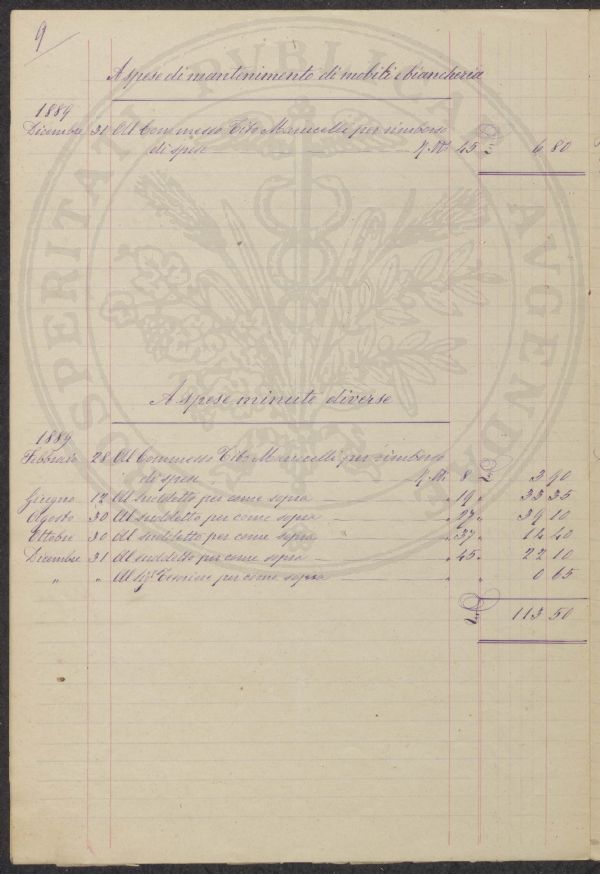 9
A spese di mantenimento di mobili e biancheria
1889
Dicembre 31 Al Commesso Tito Marucelli per rimborso
di spese M.° 45 £ 6 80
A spese minute diverse
1889
Febbraio 28 Al Commesso Tito Marucelli per rimborso
di spese M.° 8 £ 3 90
Giugno 12 Al suddetto per come sopra " 19 " 33 35
Agosto 30 Al suddetto per come sopra " 27 " 39 10
Ottobre 30 Al suddetto per come sopra " 37 " 14 40
Dicembre 31 Al suddetto per come sopra " 45 " 22 10
" " Al Sig.r Cassiere per come sopra " " 0 65
£ 113 50
PROSPERITATI PUBLICAE AVGENDAE